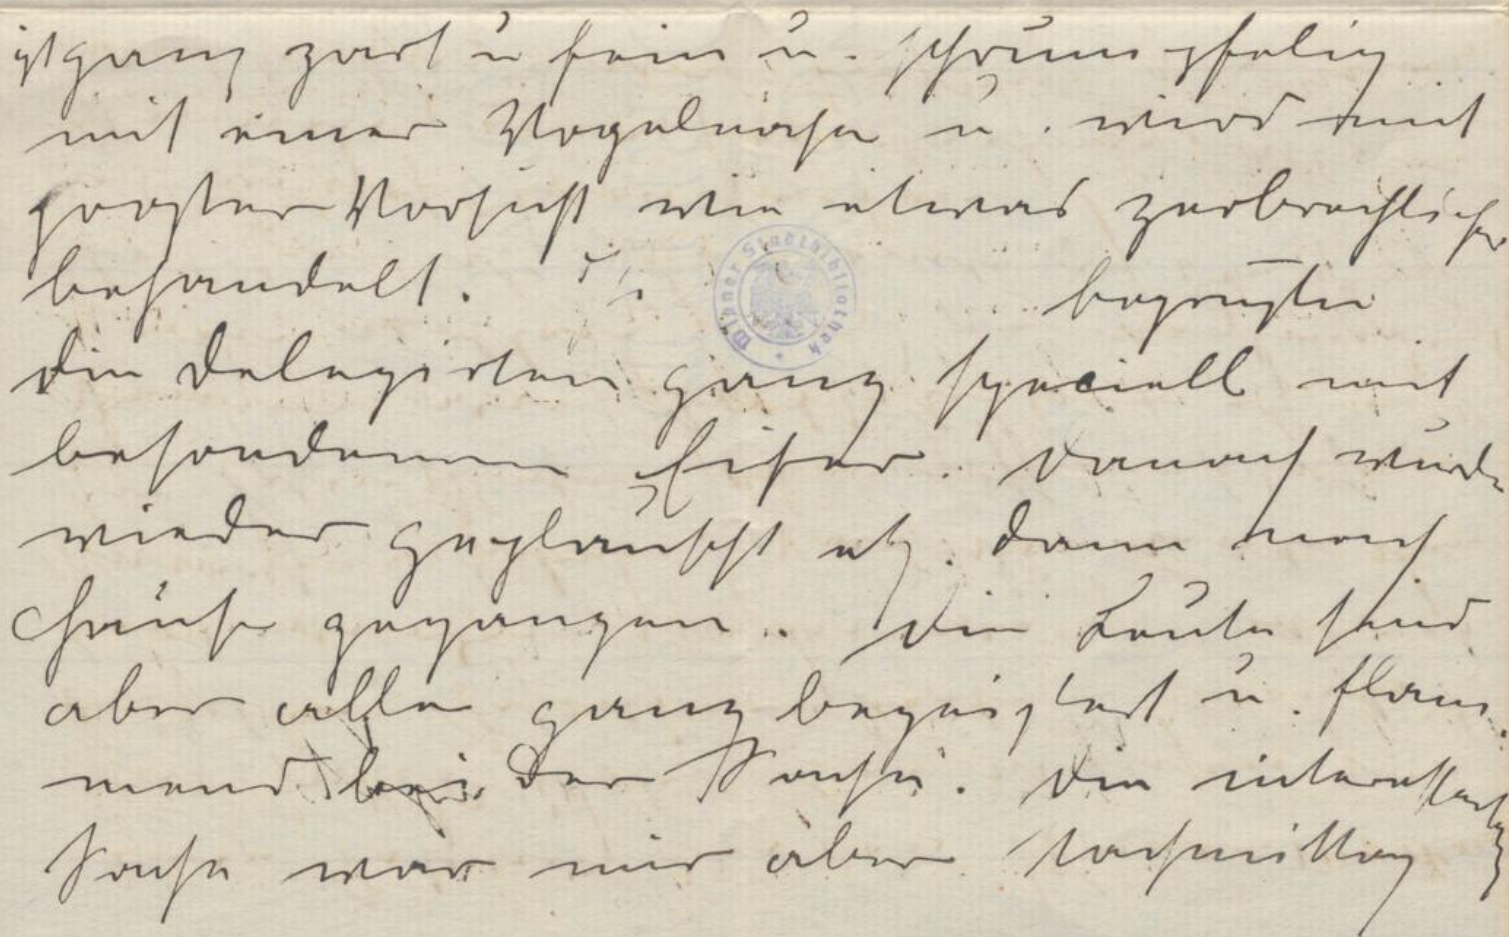 ist ganz zart u fein u. schrumpfelig
mit einer Vogelnase u. wird mit
grosster Vorsicht wie etwas zerbrechliches
behandelt. begrüsste
die Delegirten ganz speciell mit
besonderem Eifer. Danach wurde
wieder geplauscht etz. dann nach
Hause gegangen. Die Leute sind
aber alle ganz begeistert u. flam-
mend bei der Sache. Die interessanteste
Sache war mir aber Nachmittag
Wiener Stadtbibliothek